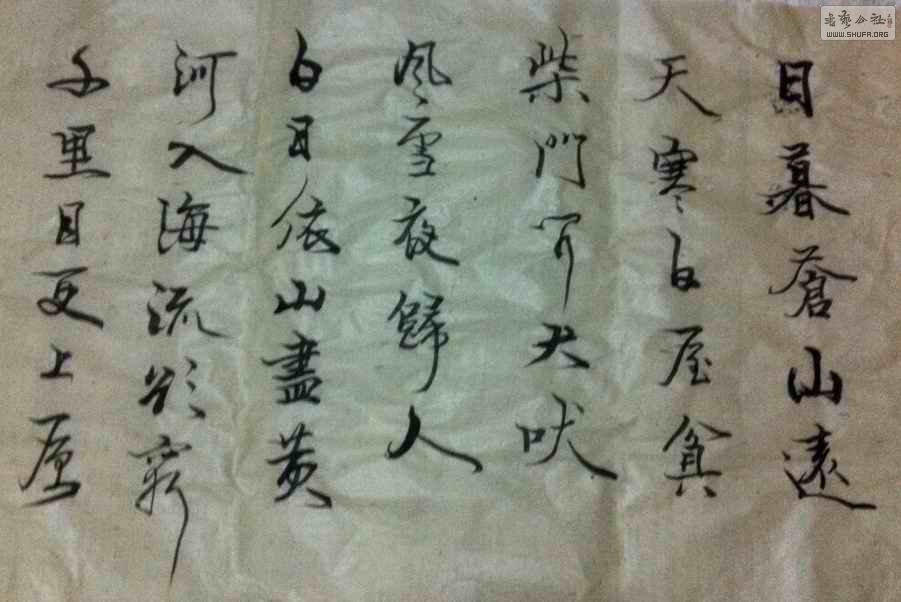 日暮蒼山遠
天寒白屋貧
柴門聞犬吠
風雪夜歸人
白日依山盡黄
河入海流欲窮
千里目更上層
WWW.SHUFA.ORG